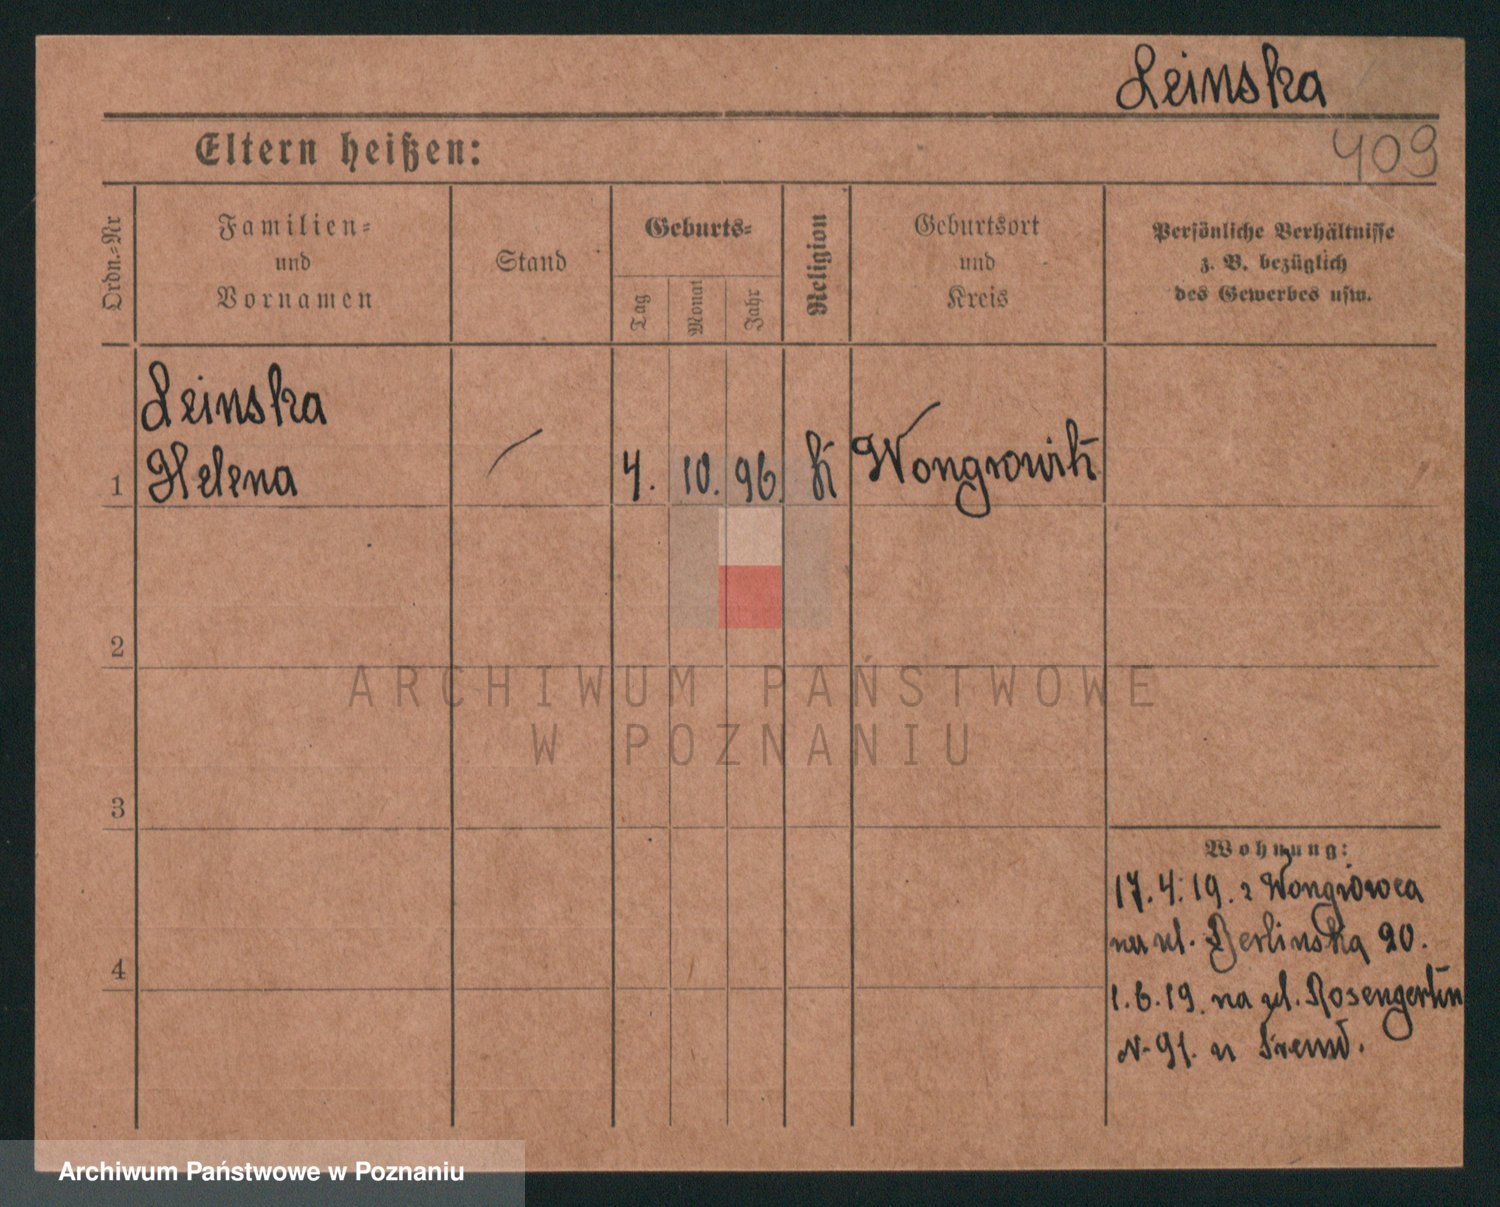 Leinska
409
Eltern heißen:
Ordn.-Nr
Familien-
und
Vornamen
Stand
Geburts-
Tag
Monat
Jahr
Religion
Geburtsort
und
Kreis
Persönliche Verhältnisse
z. B. bezüglich
des Gewerbes usw.
Leinska
1 Helena / 4. 10. 96. K Wongrowitz
2
ARCHIWUM PAŃSTWOWE
W POZNANIU
3
Wohnung:
17.4.19. z Wongrowca
na ul. Berlinska 20.
4
1.6.19. na ul.
N-91. u
Archiwum Państwowe w Poznaniu